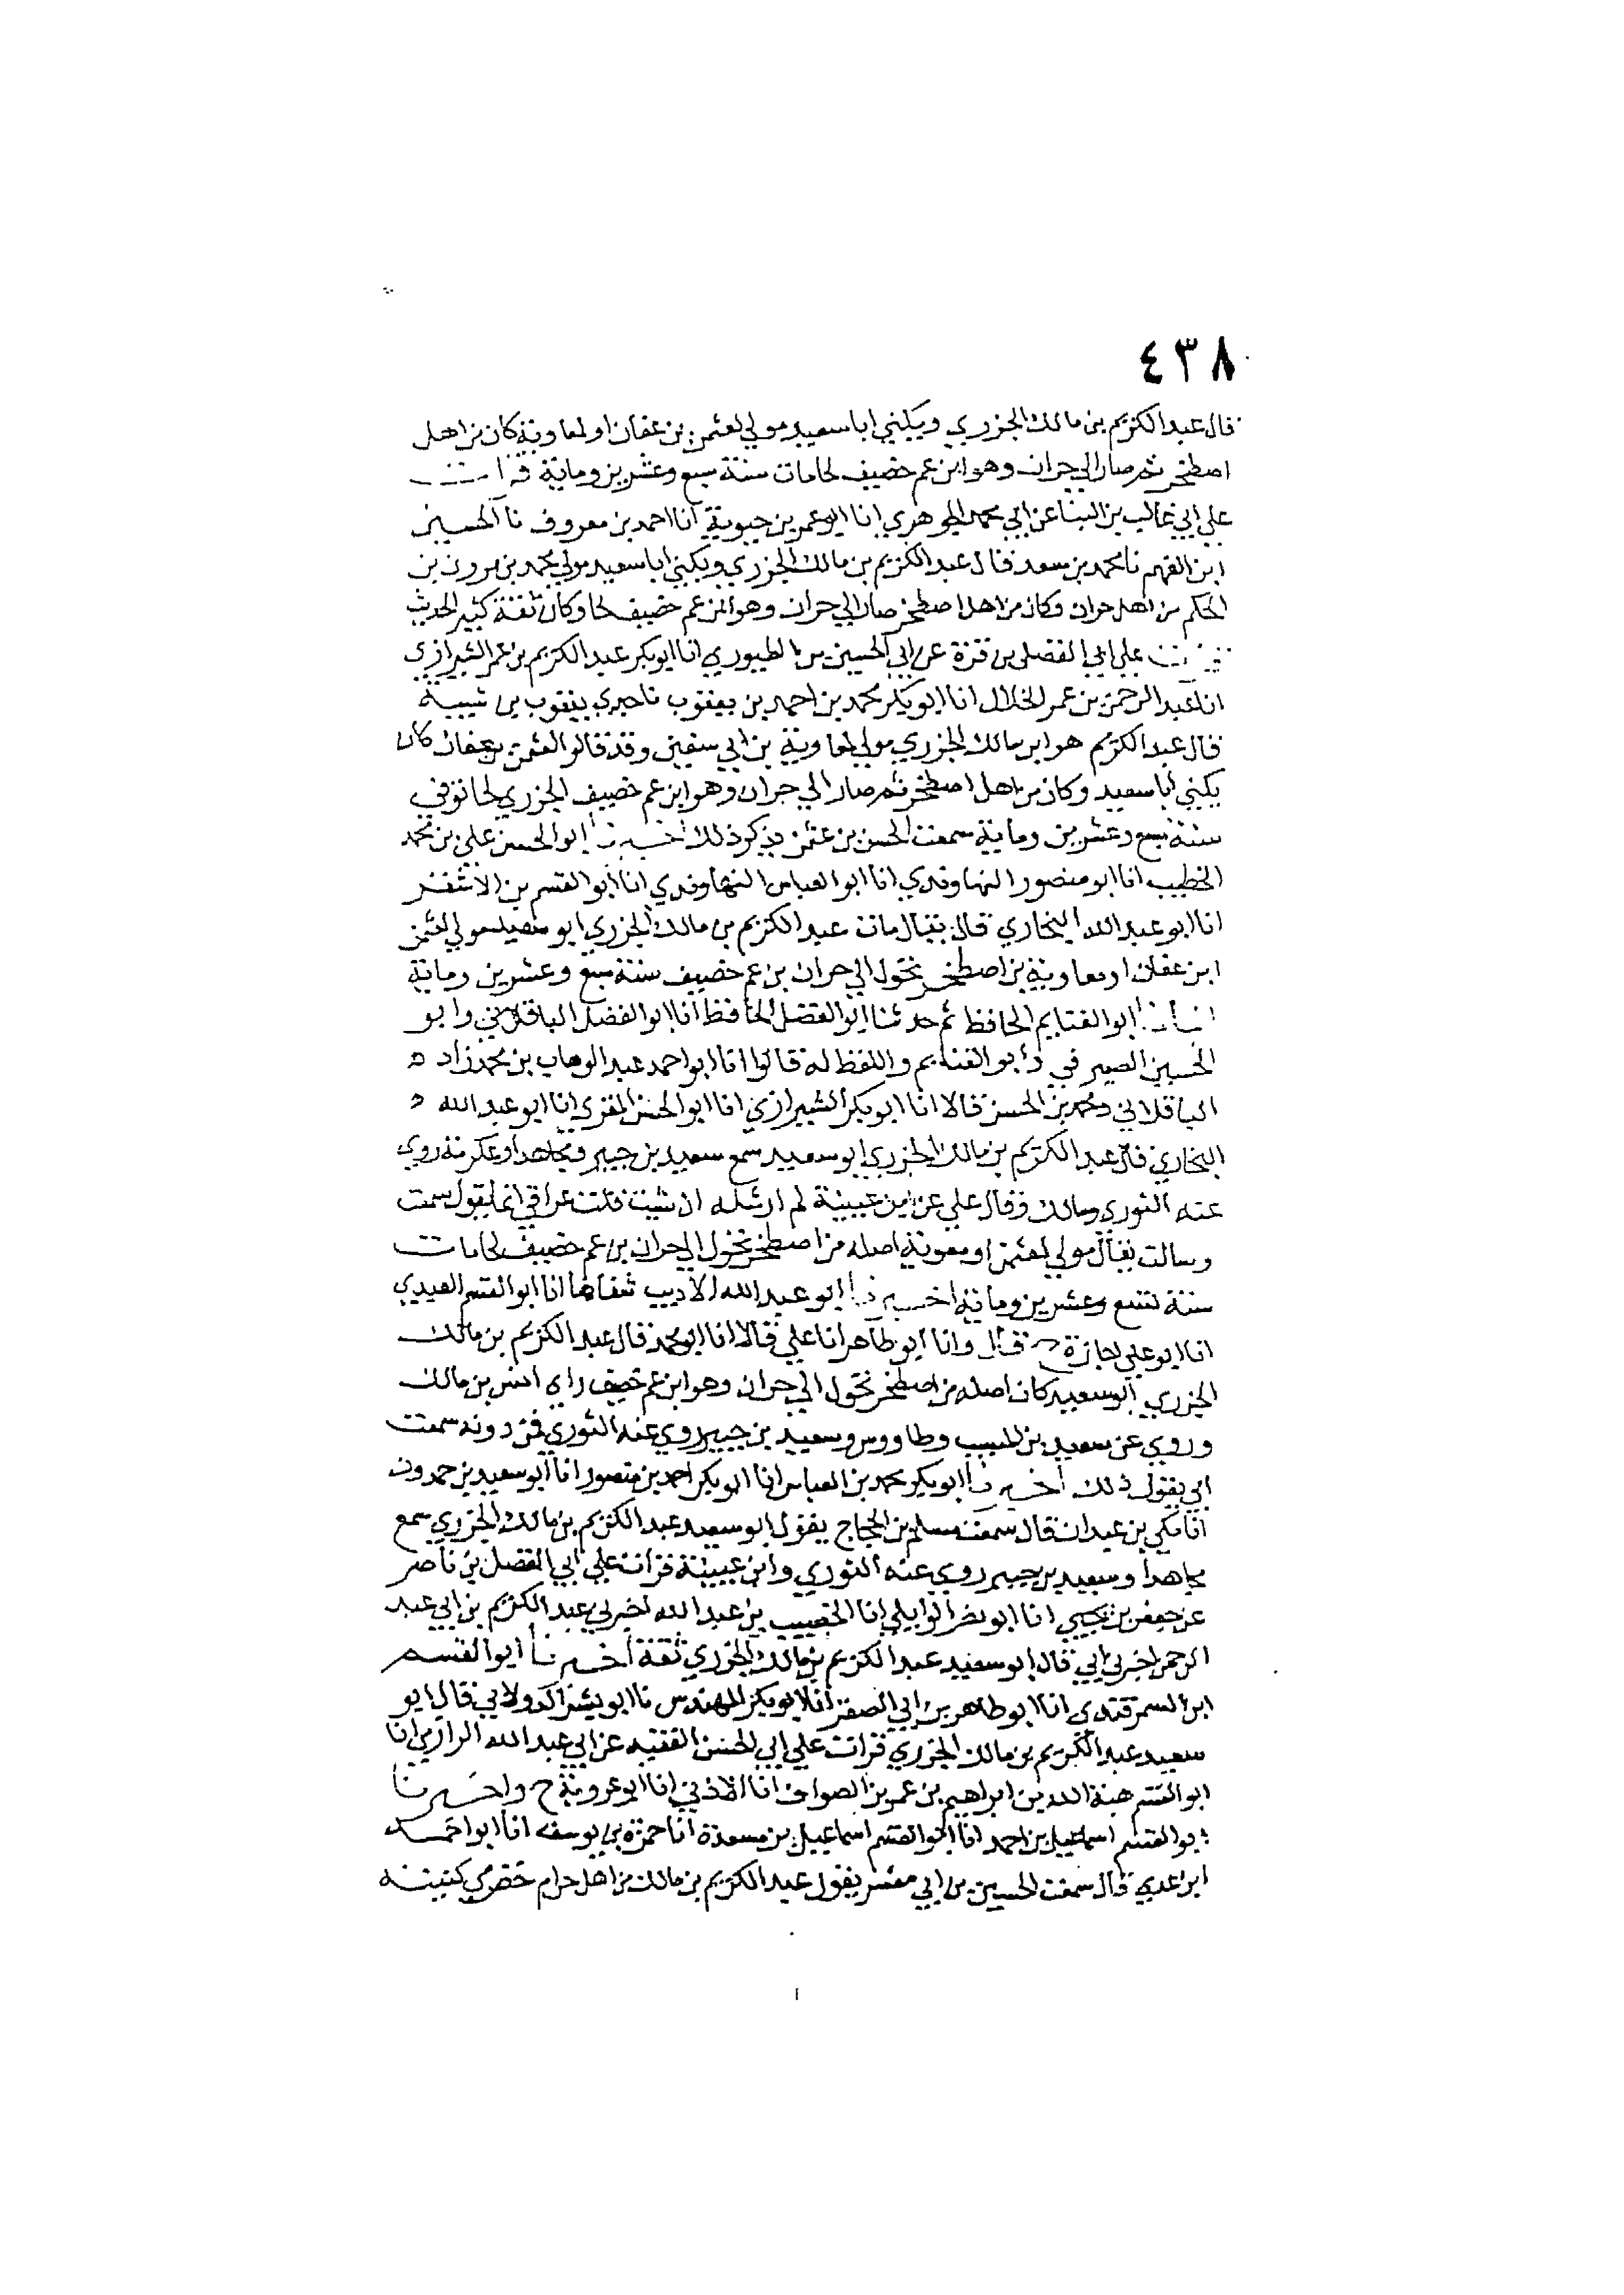 ٤٣٨
قال عبد الكريم بن مالك الجزري ويكني ابا سعيد مولي لعثمن بن عفان او لمعاوية كان من اهل
اصطخر ثم صار الي حران وهو ابن عم خصيف لحا مات سنة سبع وعشرين وماية قرات
علي ابي غالب بن البنا عن ابي محمد الجوهري انا ابو عمر بن حيوية انا احمد بن معروف نا الحسين
ابن الفهم نا محمد بن سعد قال عبد الكريم بن مالك الجزري ويكني ابا سعيد مولي محمد بن مرون بن
الحكم من اهل حران وكان من اهل اصطخر صار الي حران وهو ابن عم خصيف لحا وكان ثقة كثير الحديث
علي ابي الفضل بن قرة عن ابي الحسين بن الطيوري انا ابو بكر عبد الكريم بن عمر الشيرازي
انا عبد الرحمن بن عمر الخلال انا ابو بكر محمد بن احمد بن يعقوب نا جدي يعقوب بن شيبة
قال عبد الكريم هو ابن مالك الجزري مولي لمعاوية بن ابي سفين وقد قالوا لعثمن بن عفان كان
يكني ابا سعيد وكان من اهل اصطخر ثم صار الي حران وهو ابن عم خصيف الجزري لحا توفي
سنة سبع وعشرين وماية سمعت الحسن بن عثمن يذكر ذلك اخبرنا ابو الحسن علي بن محمد
الخطيب انا ابو منصور النهاوندي انا ابو العباس النهاوندي انا ابو القسم بن الاشقر
انا ابو عبد الله البخاري قال يقال مات عبد الكريم بن مالك الجزري ابو سعيد مولي لعثمن
ابن عفان او معاوية من اصطخر تحول الي حران بن عم خصيف سنة سبع وعشرين وماية
انبانا ابو الغنايم الحافظ ثم حدثنا ابو الفضل الحافظ انا ابو الفضل الباقلاني وابو
الحسين الصيرفي وابو الغنايم واللفظ له قالوا انا ابو احمد عبد الوهاب بن محمد زاد
الباقلاني ومحمد بن الحسن قالا انا ابو بكر الشيرازي انا ابو الحسن المقري انا ابو عبد الله
البخاري قال عبد الكريم بن مالك الجزري ابو سعيد سمع سعيد بن جبير ومجاهدا وعكرمة روي
عنه الثوري ومالك وقال علي عن ابن عيينة لم ار مثله ان شيت قلت عراقي انما يقول سمعت
وسالت يقال مولي لعثمن او معوية اصله من اصطخر تحول الي حران بن عم خصيف لحا مات
سنة تسع وعشرين وماية اخبرنا ابو عبد الله الاديب شفاها انا ابو القسم العبدي
انا ابو علي اجازة ح قال وانا ابو طاهر انا علي قالا انا ابو محمد قال عبد الكريم بن مالك
الجزري ابو سعيد كان اصله من اصطخر تحول الي حران وهو ابن عم خصيف راي انس بن مالك
وروي عن سعيد بن المسيب وطاووس وسعيد بن جبير روي عنه الثوري فمن دونه سمعت
ابي يقول ذلك اخبرنا ابو بكر محمد بن العباس انا ابو بكر احمد بن منصور انا ابو سعيد بن حمدون
انا مكي بن عبدان قال سمعت مسلم بن الحجاج يقول ابو سعيد عبد الكريم بن مالك الجزري سمع
مجاهدا وسعيد بن جبير روي عنه الثوري وابن عيينة قرات علي ابي الفضل بن ناصر
عن جعفر بن يحيي انا ابو نصر الوايلي انا الخصيب بن عبد الله اخبرني عبد الكريم بن ابي عبد
الرحمن اخبرني ابي قال ابو سعيد عبد الكريم بن مالك الجزري ثقة اخبرنا ابو القسم
ابن السمرقندي انا ابو طاهر بن ابي الصقر انا ابو بكر المهندس نا ابو بشر الدولابي قال ابو
سعيد عبد الكريم بن مالك الجزري قرات علي ابي الحسن الفقيه عن ابي عبد الله الرازي انا
ابو القسم هبة الله بن ابراهيم بن عمر بن الصواف انا الاذني انا ابو عروبة ح واخبرنا
ابو القسم اسماعيل بن احمد انا ابو القسم اسماعيل بن مسعدة انا حمزة بن يوسف انا ابو احمد
ابن عدي قال سمعت الحسين بن ابي معشر يقول عبد الكريم بن مالك من اهل حرام خضرمي كنيته